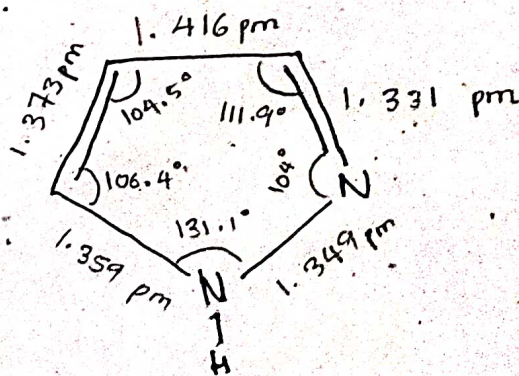 1.416 pm
1.373 pm
104.5°
111.9°
1.331 pm
106.4°
104°
N
131.1°
1.359 pm
1.349 pm
N
H